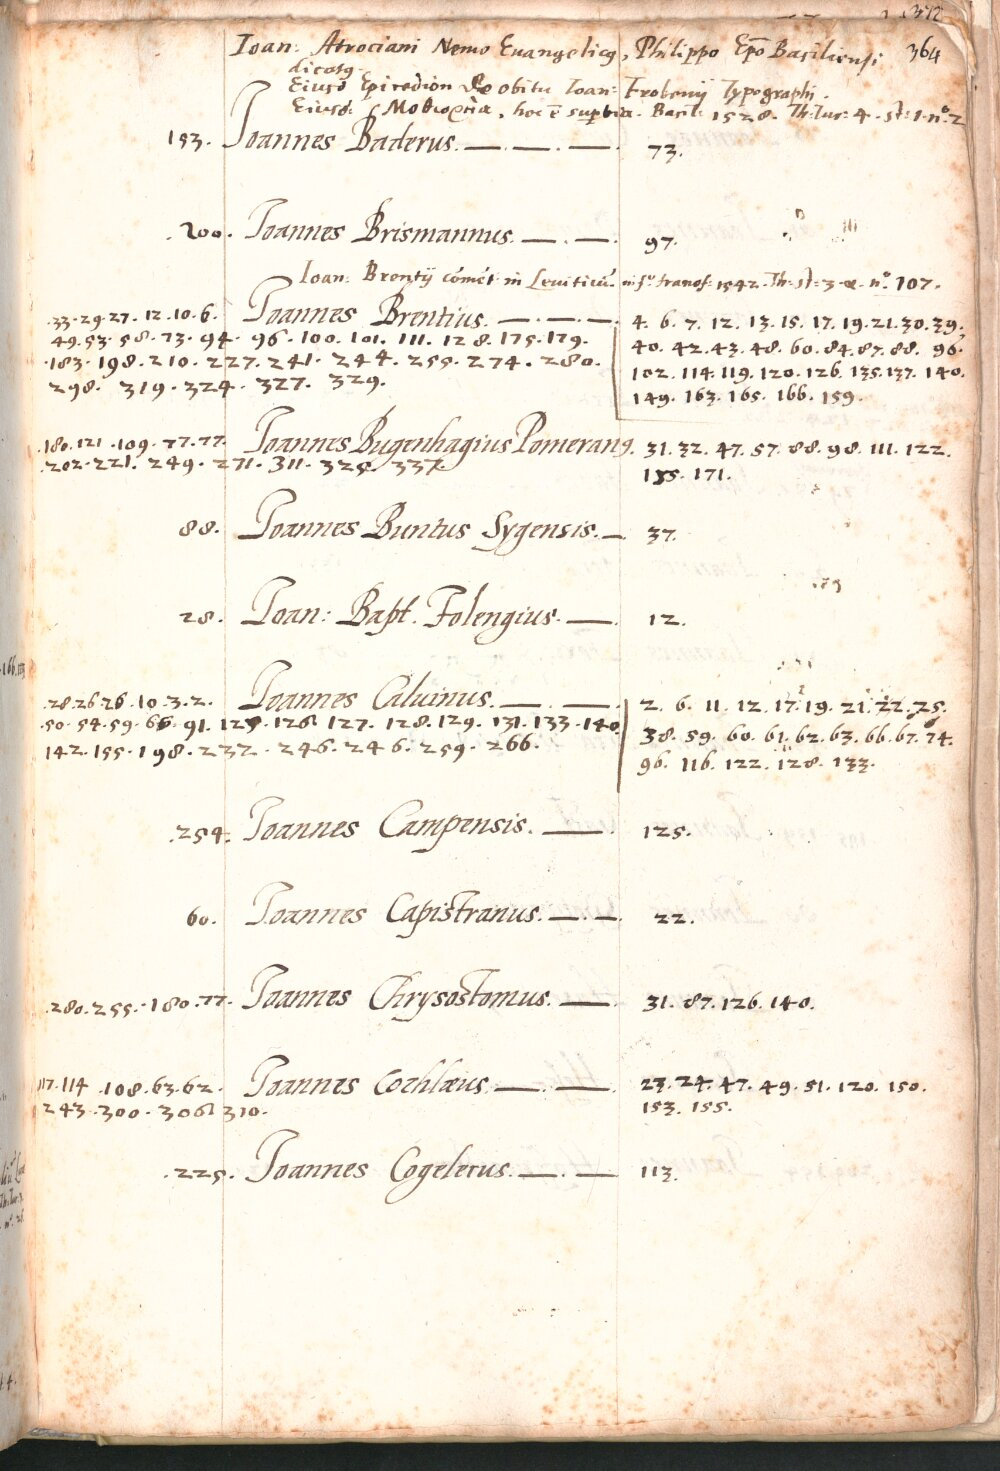 372
Ioan: Atrociani Nemo Euangelicus, Philippo Epo Basiliensi 364
dicatus.
Eiusd. Epicedion de obitu Ioan: Frobenij Typographi.
Eiusd. hoc e superbia. Basil: 1528. Th: Lut: 4. st: 1. no. 2
153. Joannes Baderus. — . — . — 73.
200. Joannes Brismannus. — . — . 97.
Ioan: Brentij comet: in Leuiticu. in fo. transf: 1542. Th: st: 3. no. 107.
33. 29. 27. 12. 10. 6. Joannes Brentius. — . — . — 4. 6. 7. 12. 13. 15. 17. 19. 21. 30. 39.
49. 53. 58. 73. 94. 96. 100. 101. 111. 128. 175. 179. 40. 42. 43. 48. 60. 84. 87. 88. 96.
183. 198. 210. 227. 241. 244. 255. 274. 280. 102. 114. 119. 120. 126. 135. 137. 140.
298. 319. 324. 327. 329. 149. 163. 165. 166. 159.
180. 121. 109. 77. 77. Joannes Bugenhagius Pomeranus. 31. 32. 47. 57. 88. 98. 111. 122.
202. 221. 249. 271. 311. 325. 337. 135. 171.
88. Joannes Buntus Sygensis. — . 37.
28. Joan: Bapt. Folengius. — 12.
28. 26 26. 10. 3. 2. Joannes Caluinus. — . — 2. 6. 11. 12. 17. 19. 21. 22. 25.
50. 54. 59. 66. 91. 125. 126. 127. 128. 129. 131. 133. 140. 38. 59. 60. 61. 62. 63. 66. 67. 74.
142. 155. 198. 232. 246. 246. 259. 266. 96. 116. 122. 128. 133.
254. Joannes Campensis. — 125.
60. Joannes Capistranus. — . — . 22.
280. 255. 180. 77. Joannes Chrysostomus. — 31. 87. 126. 140.
117. 114. 108. 63. 62. Joannes Cochlæus. — . — 23. 24. 47. 49. 51. 120. 150.
243. 300. 306. 310. 153. 155.
225. Joannes Cogelerus. — . — 113.